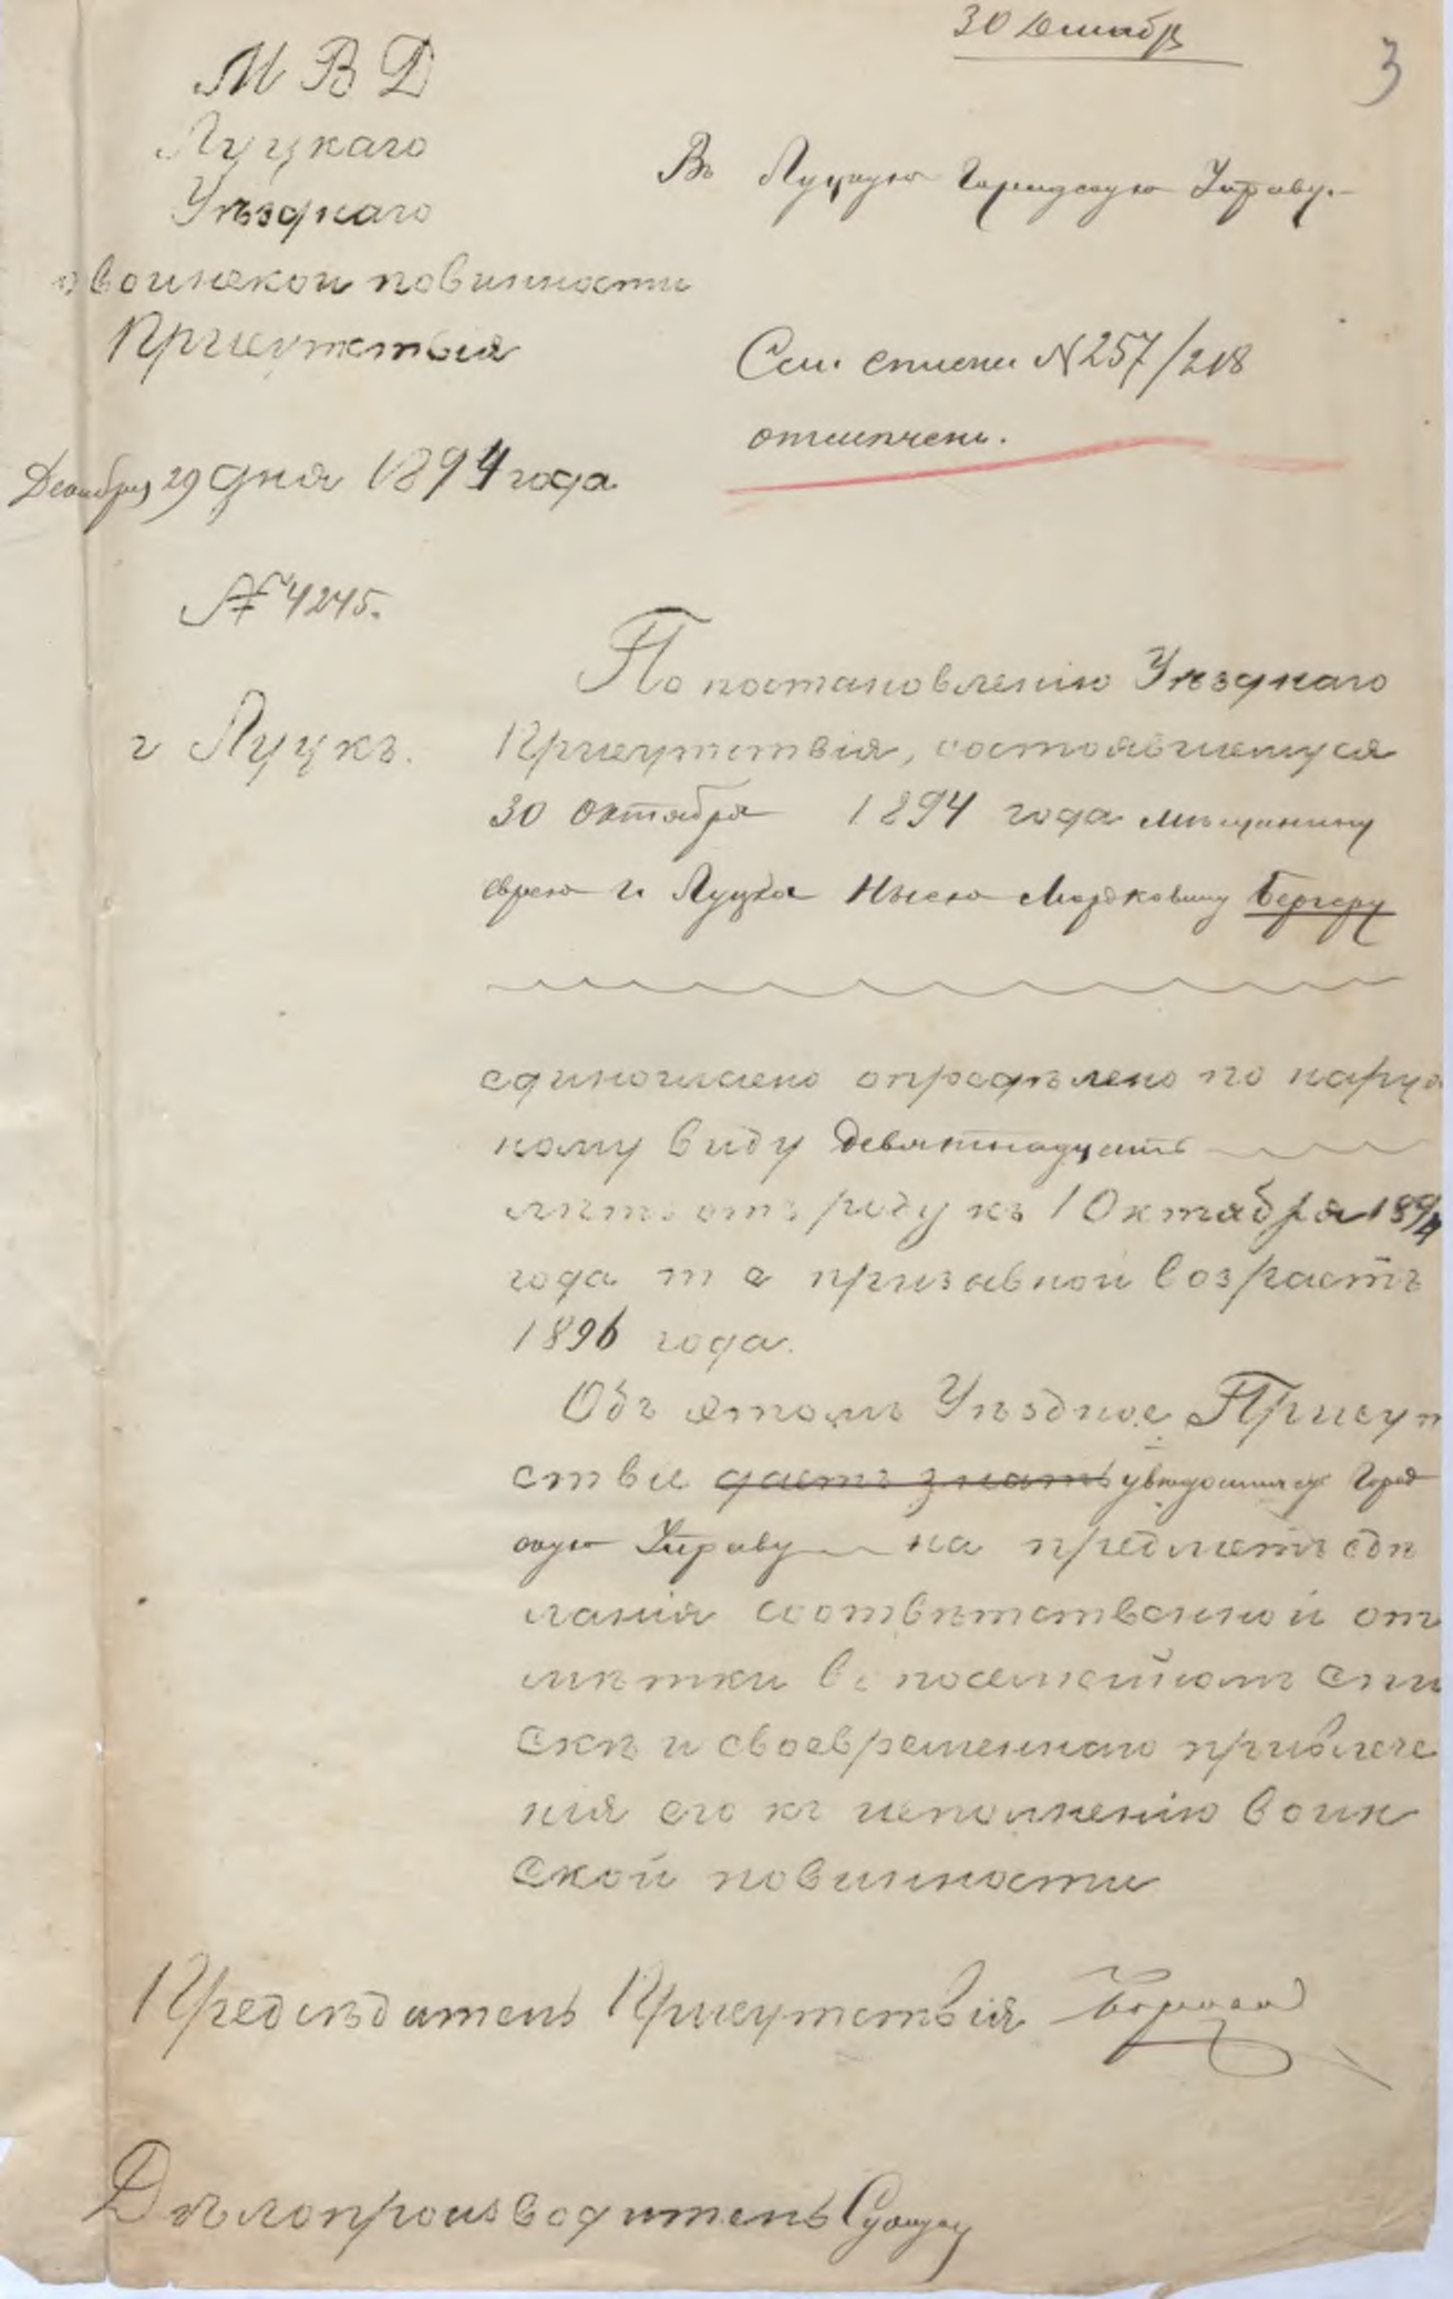 30 Декабр
3
М В Д
Луцкаго
Уѣзднаго
о воинской повинности
Присутствія
Декабря 29 дня 1894 года
№ 4245.
г Луцкъ.
Въ Луцкую Городскую Управу.
Сем. списки № 257/218
отмѣчено.
По постановленію Уѣзднаго
Присутствія, состоявшемуся
30 октября 1894 года мѣщанину
еврею г. Луцка Нысею Мордковичу Бергеру
единогласно опредѣлено по наруж
ному виду девятнадцать
лѣтъ отъ роду къ 1 Октября 1894
года т е призывной возрастъ
1896 года.
Объ этомъ Уѣздное Присут
ствіе даетъ знать увѣдомляетъ Город
скую Управу на предметъ сдѣ
ланія соотвѣтственной от
мѣтки въ посемейномъ спи
скѣ и своевременнаго привлече
нія его къ исполненію воин
ской повинности
Предсѣдатель Присутствія
Дѣлопроизводитель